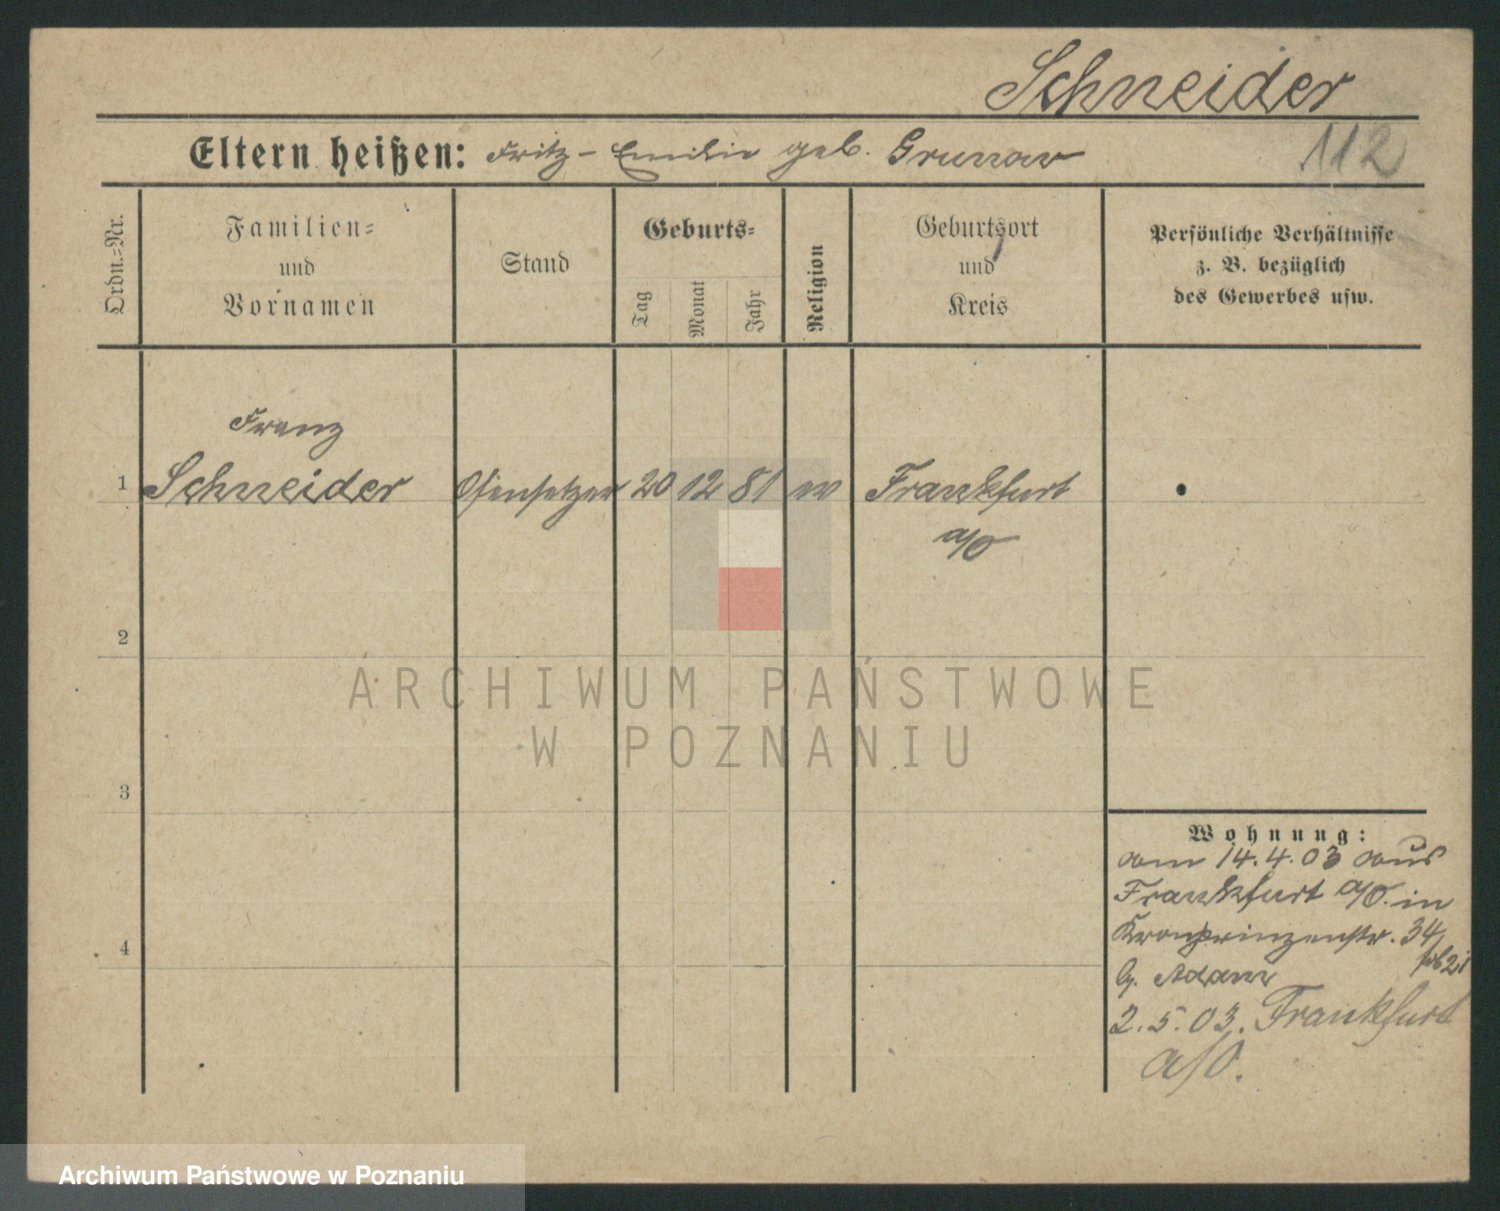 Schneider
Eltern heißen: Fritz - Emilie geb. Grunow
112
Ordn.-Nr.
Familien-
und
Vornamen
Stand
Geburts-
Tag
Monat
Jahr
Religion
Geburtsort
und
Kreis
Persönliche Verhältnisse
z. B. bezüglich
des Gewerbes usw.
Franz
1 Schneider Ofensetzer 20 12 81 ev Frankfurt
a/O
2
3
4
Wohnung:
am 14.4.03 aus
Frankfurt a/O. in
Kronprinzenstr. 34
b. Adam
2.5.03. Frankfurt
a/O.
ARCHIWUM PAŃSTWOWE
W POZNANIU
Archiwum Państwowe w Poznaniu